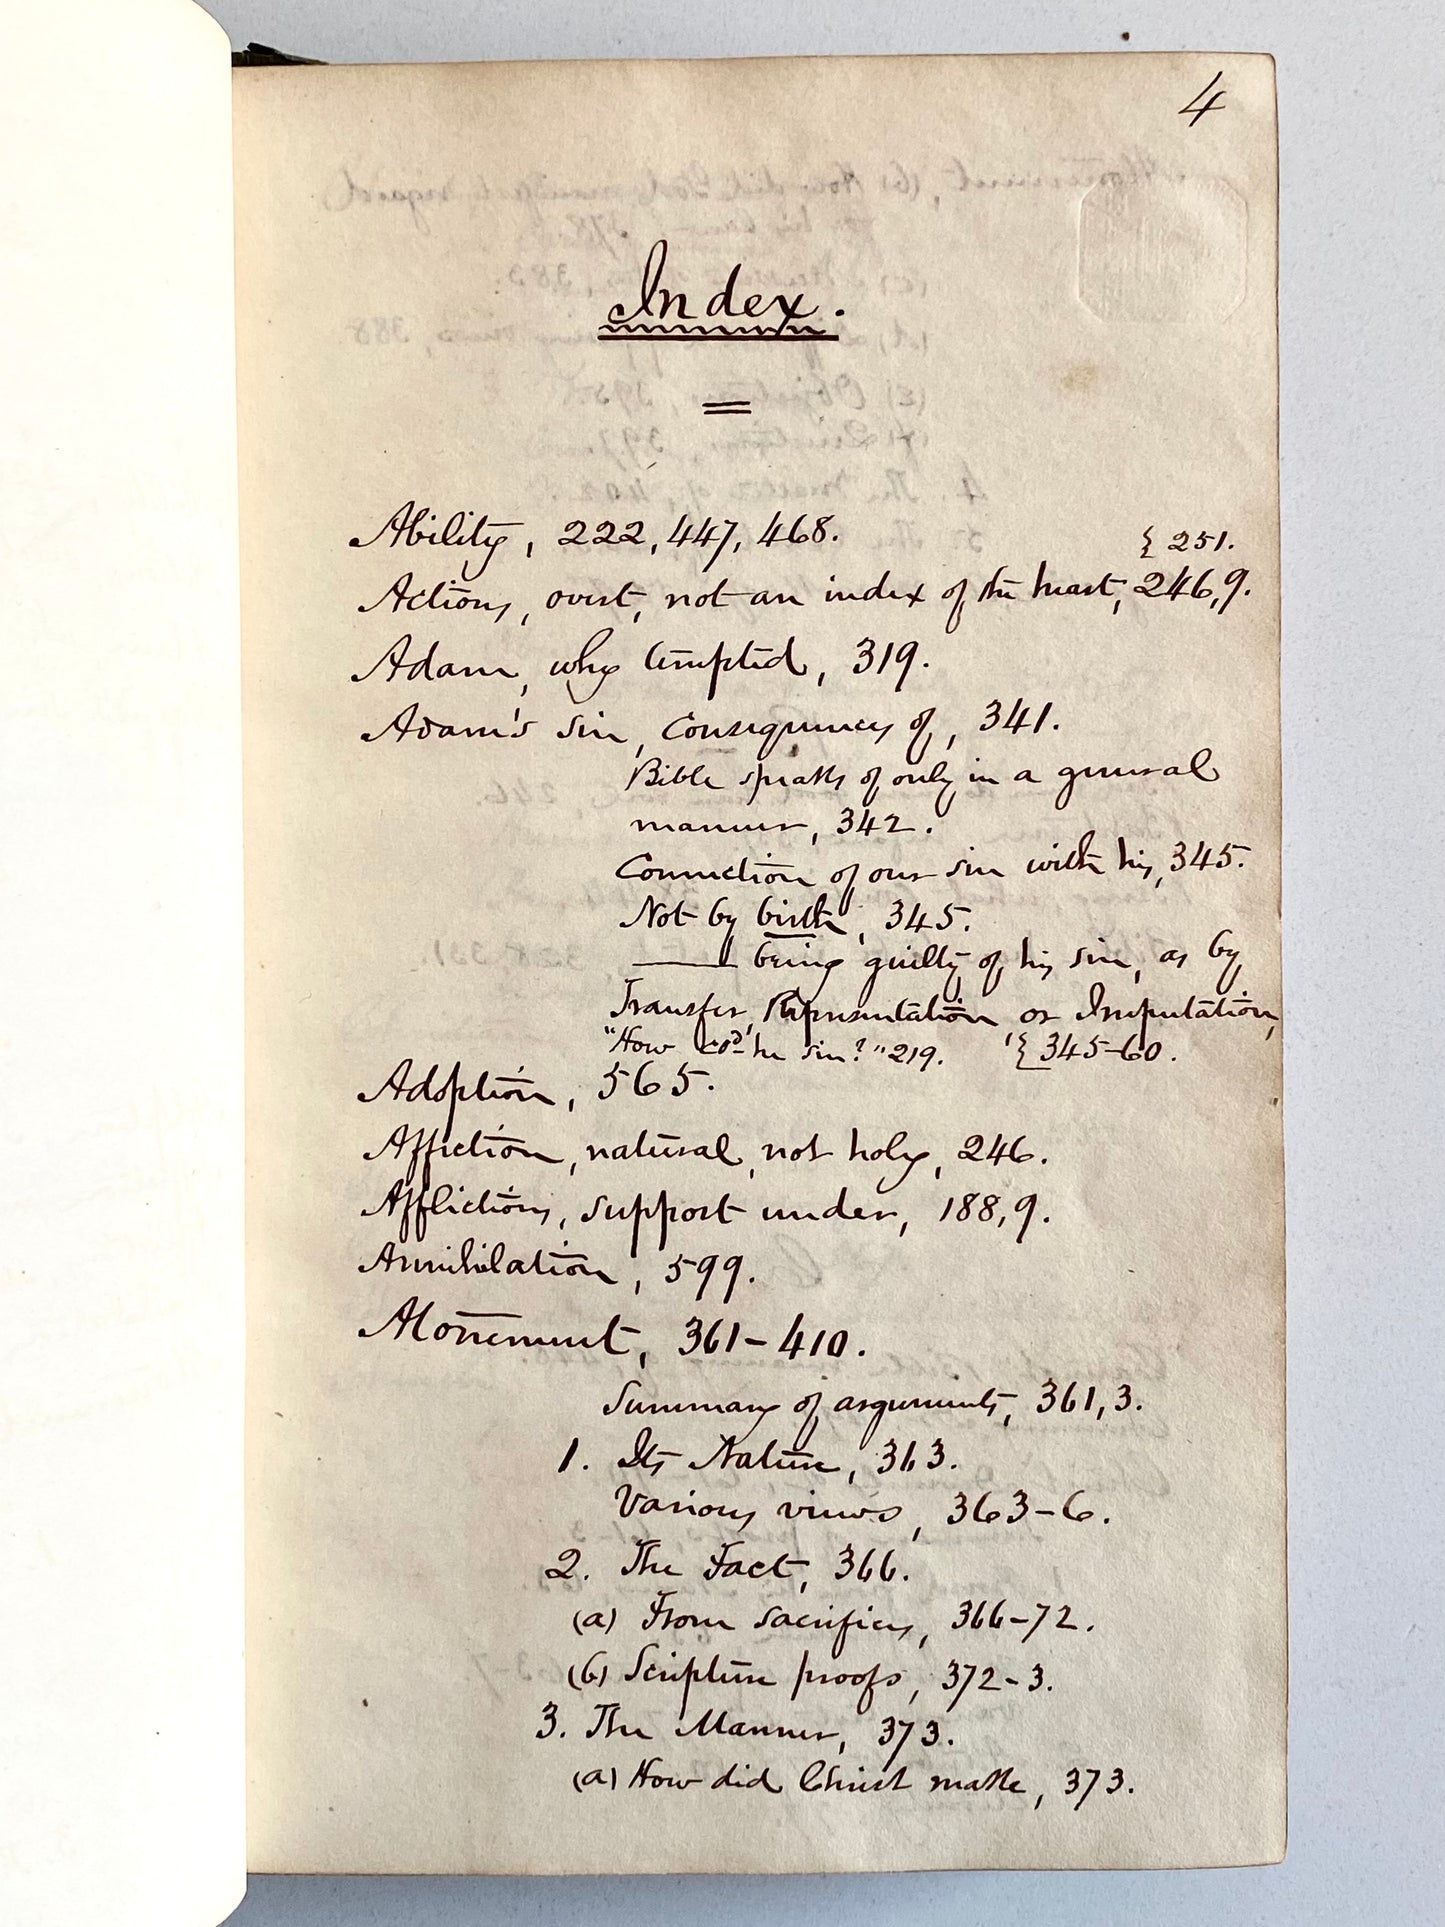 4
Index.
Ability, 222, 447, 468.
{ 251.
Actions, overt, not an index of the heart, 246,9.
Adam, why tempted, 319.
Adam's sin, Consequences of, 341.
Bible speaks of only in a general
manner, 342.
Connection of our sin with his, 345.
Not by birth, 345.
—— being guilty of his sin, as by
Transfer, Representation or Imputation,
"How cod he sin?" 219. { 345-60.
Adoption, 565.
Affection, natural, not holy, 246.
Afflictions, support under, 188,9.
Annihilation, 599.
Atonement, 361-410.
Summary of arguments, 361,3.
1. Its Nature, 363.
Various views, 363-6.
2. The Fact, 366.
(a) From sacrifices, 366-72.
(b) Scripture proofs, 372-3.
3. The Manner, 373.
(a) How did Christ make, 373.